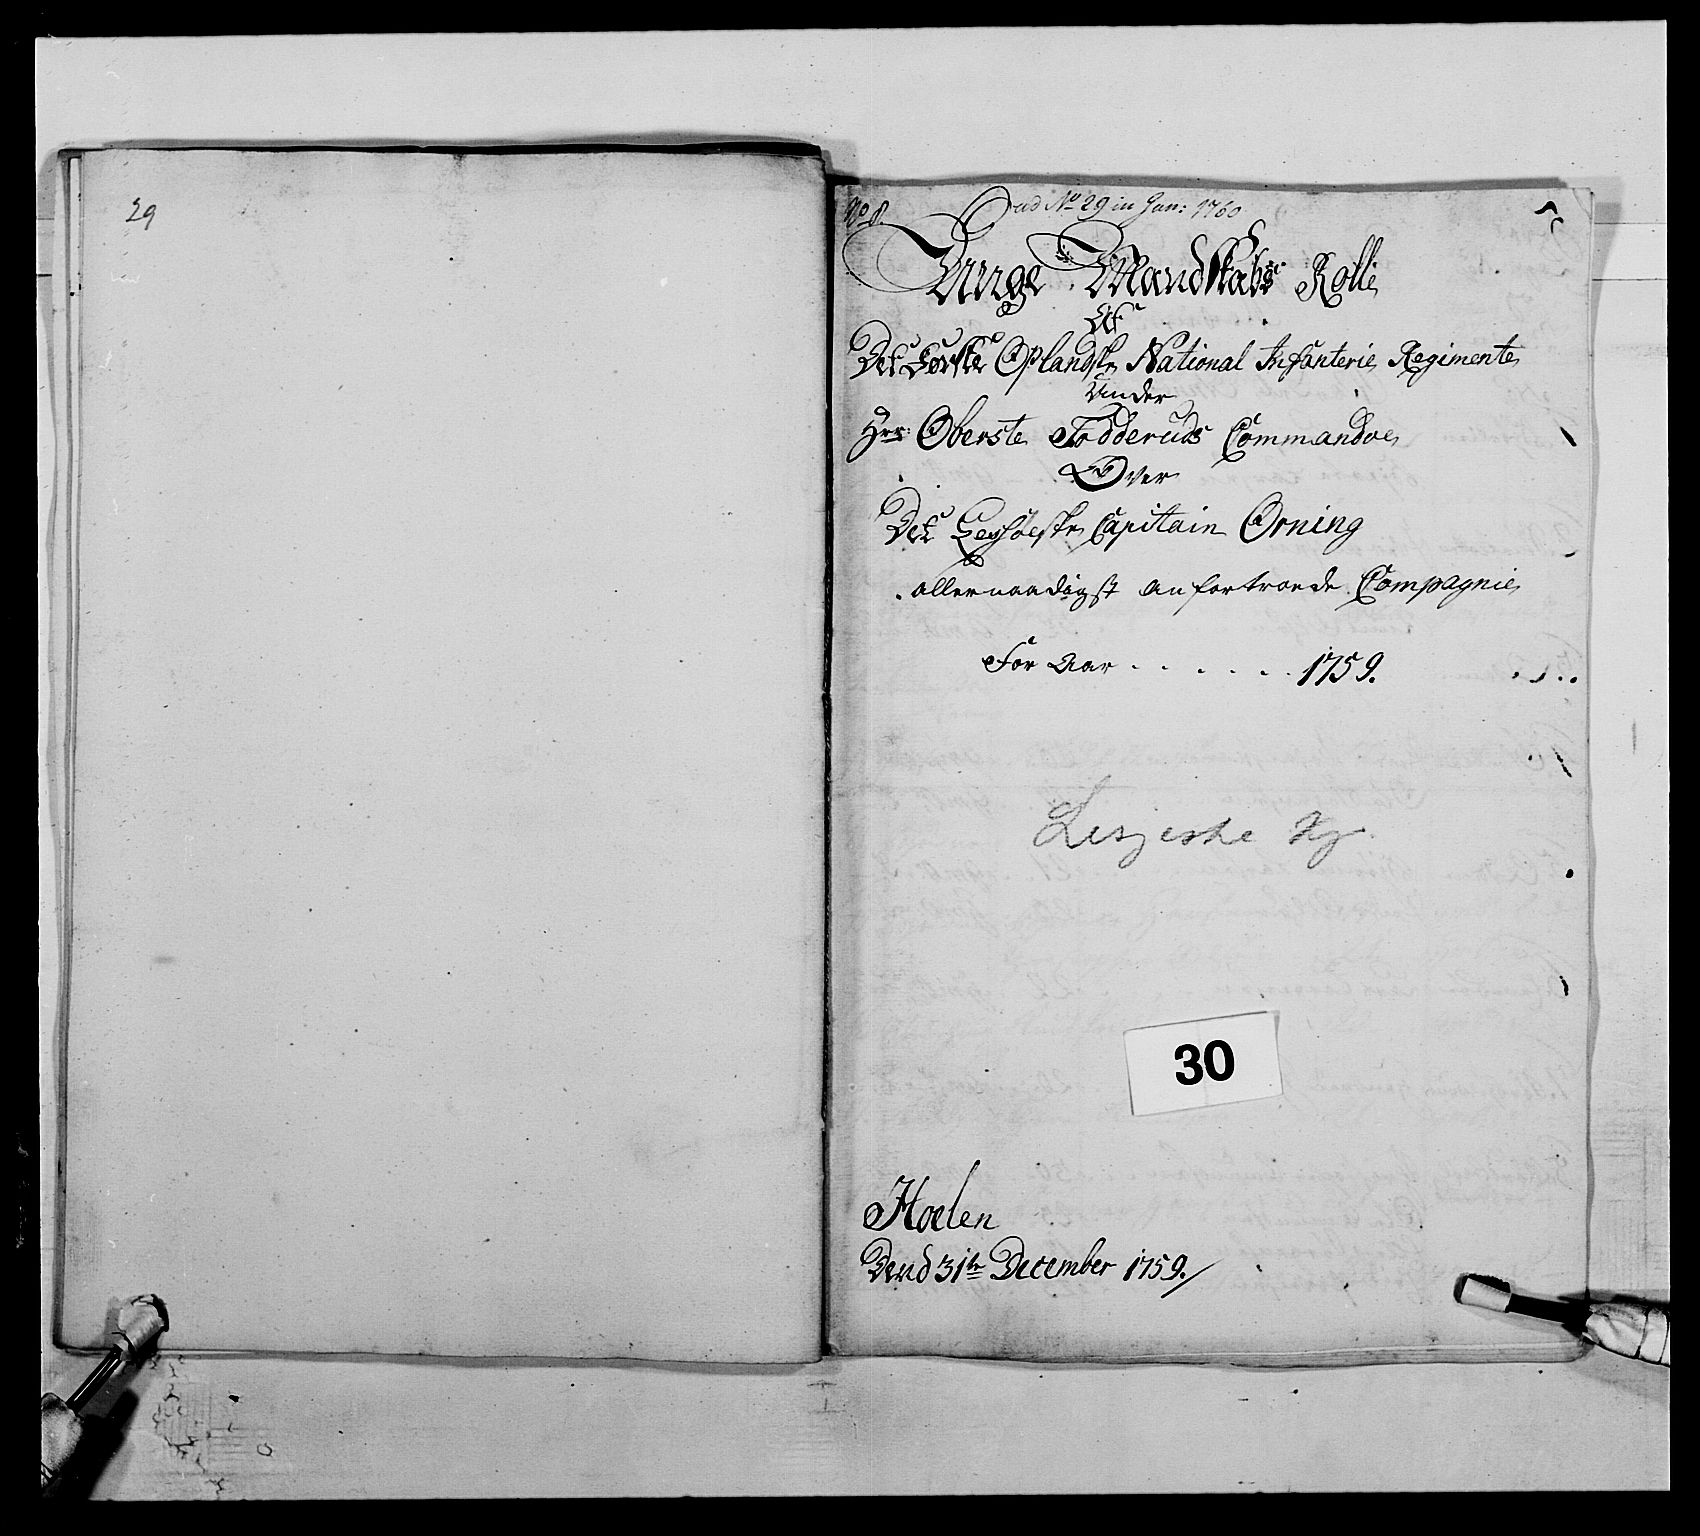 29
No 8.
ad No 29 in Jan: 1760
Unge Mandskabs Rolle
Af
Det Første Oplandske National Infanterie Regimente
Under
Hrr: Oberste Fodderuds Commandoe
Over
Det Lessøeske Capitain Orning
allernaadigst anfortroede Compagnie
For Aar . . . . . . 1759.
Lesjeske Kp.
30
Hoelen
Dend 31te December 1759.